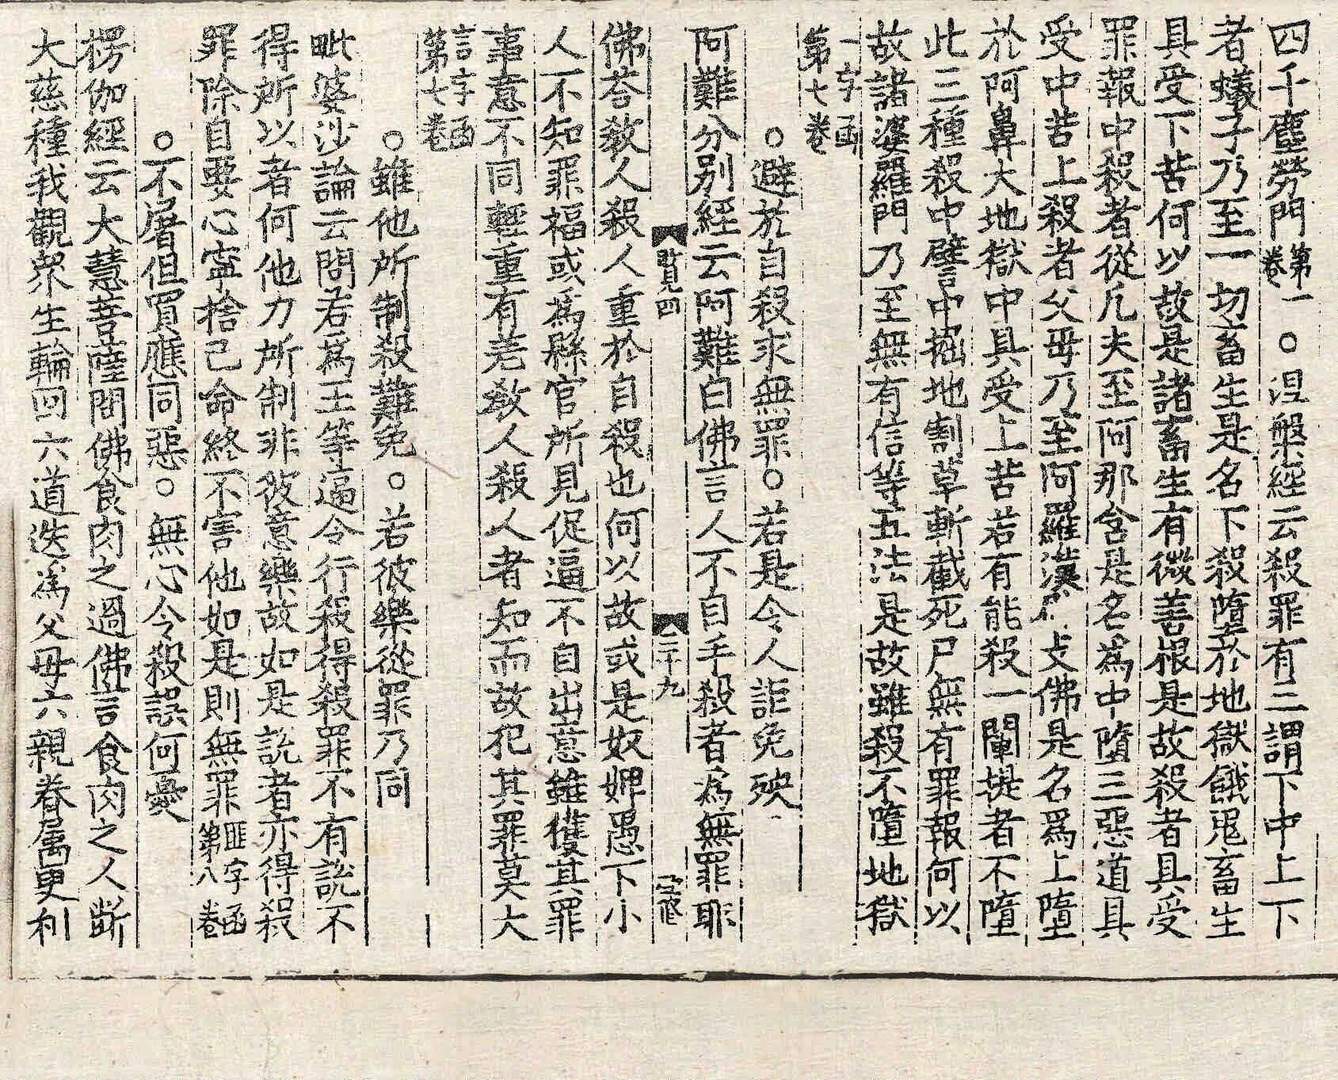 四千塵勞門第一卷○涅槃經云殺罪有三謂下中上下
者蟻子乃至一切畜生是名下殺墮於地獄餓鬼畜生
具受下苦何以故是諸畜生有微善根是故殺者具受
罪報中殺者從凡夫至阿那含是名爲中墮三惡道具
受中苦上殺者父母乃至阿羅漢支佛是名爲上墮
於阿鼻大地獄中具受上苦若有能殺一闡提者不墮
此三種殺中譬中掘地割草斬截死尸無有罪報何以
故諸婆羅門乃至無有信等五法是故雖殺不墮地獄
一字函
第七卷
○避於自殺求無罪○若是令人詎免殃
阿難分別經云阿難白佛言人不自手殺者爲無罪耶
四
二十九
佛荅敎人殺人重於自殺也何以故或是奴婢愚下小
人不知罪福或爲縣官所見促逼不自出意雖獲其罪
事意不同輕重有差敎人殺人者知而故犯其罪莫大
言字函
第七卷
○雖他所制殺難免○若彼樂從罪乃同
毗婆沙論云問若爲王等逼令行殺得殺罪不有說不
得所以者何他力所制非彼意樂故如是說者亦得殺
罪除自要心寧捨己命終不害他如是則無罪匪字函第八卷
○不屠但買應同惡○無心令殺誤何憂
楞伽經云大慧菩薩問佛食肉之過佛言食肉之人斷
大慈種我觀衆生輪回六道迭爲父母六親眷屬更利